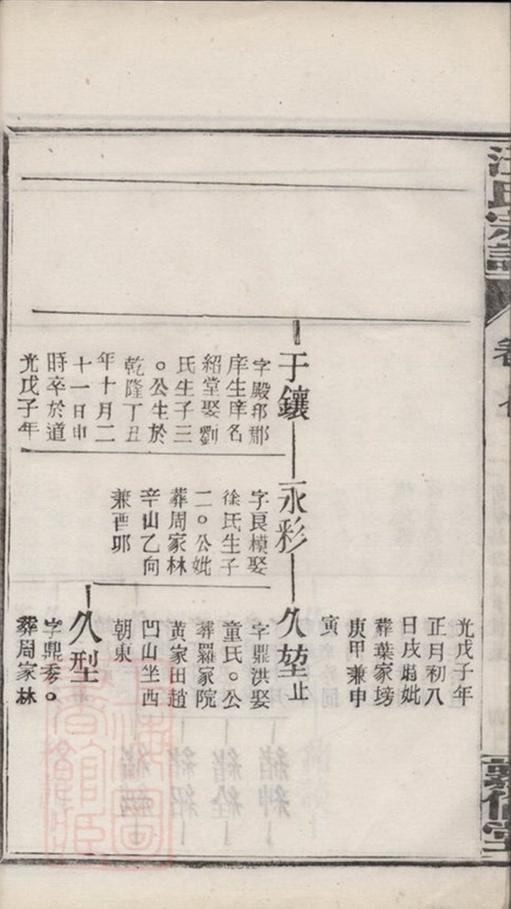 汪氏宗譜
卷
堂
于鑲
字殿邦郡
庠生庠名
紹堂娶劉
氏生子三
○公生於
乾隆丁丑
年十月二
十一日申
時卒於道
光戊子年
永彩
字良模娶
徐氏生子
二○公妣
葬周家林
辛山乙向
兼酉卯
光戊子年
正月初八
日戌時妣
葬葉家塝
庚甲兼申
寅
久堃止
字鼎洪娶
童氏○公
葬羅家院
黃家田趙
凹山坐西
朝東
久型
字鼎○
葬周家林